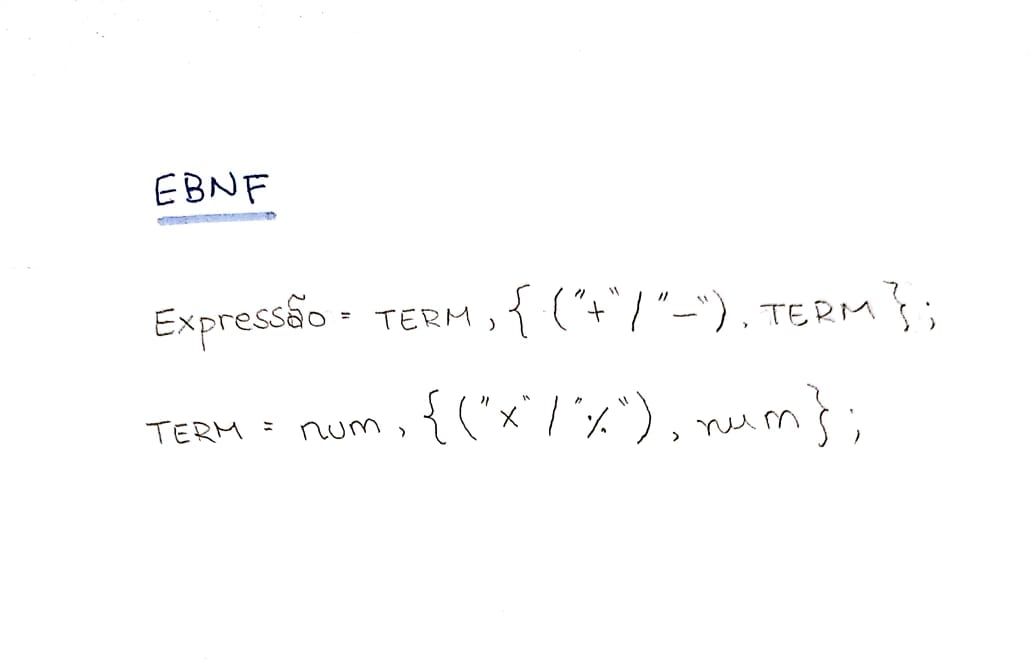 EBNF
Expressão = TERM, { ("+" / "-"), TERM };
TERM = num, { ("x" / "%"), num };